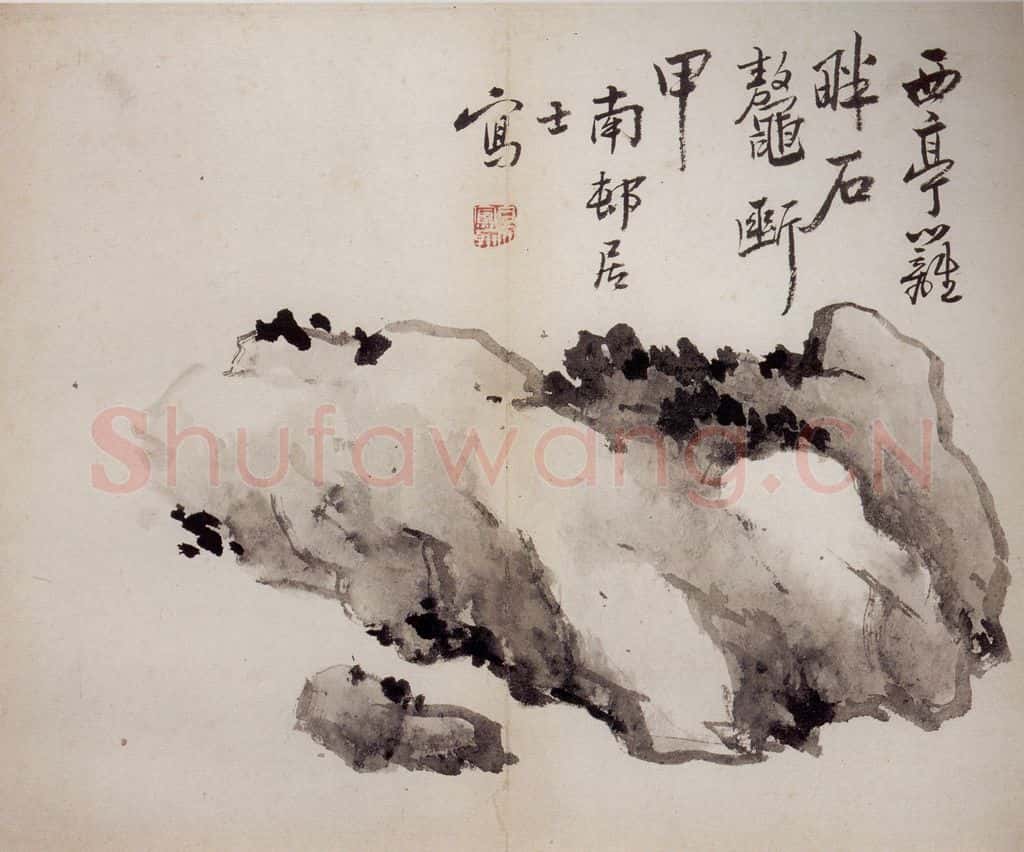 西亭籬
畔石
鼇斷
甲
南邨居
士
寫
Shufawang.CN